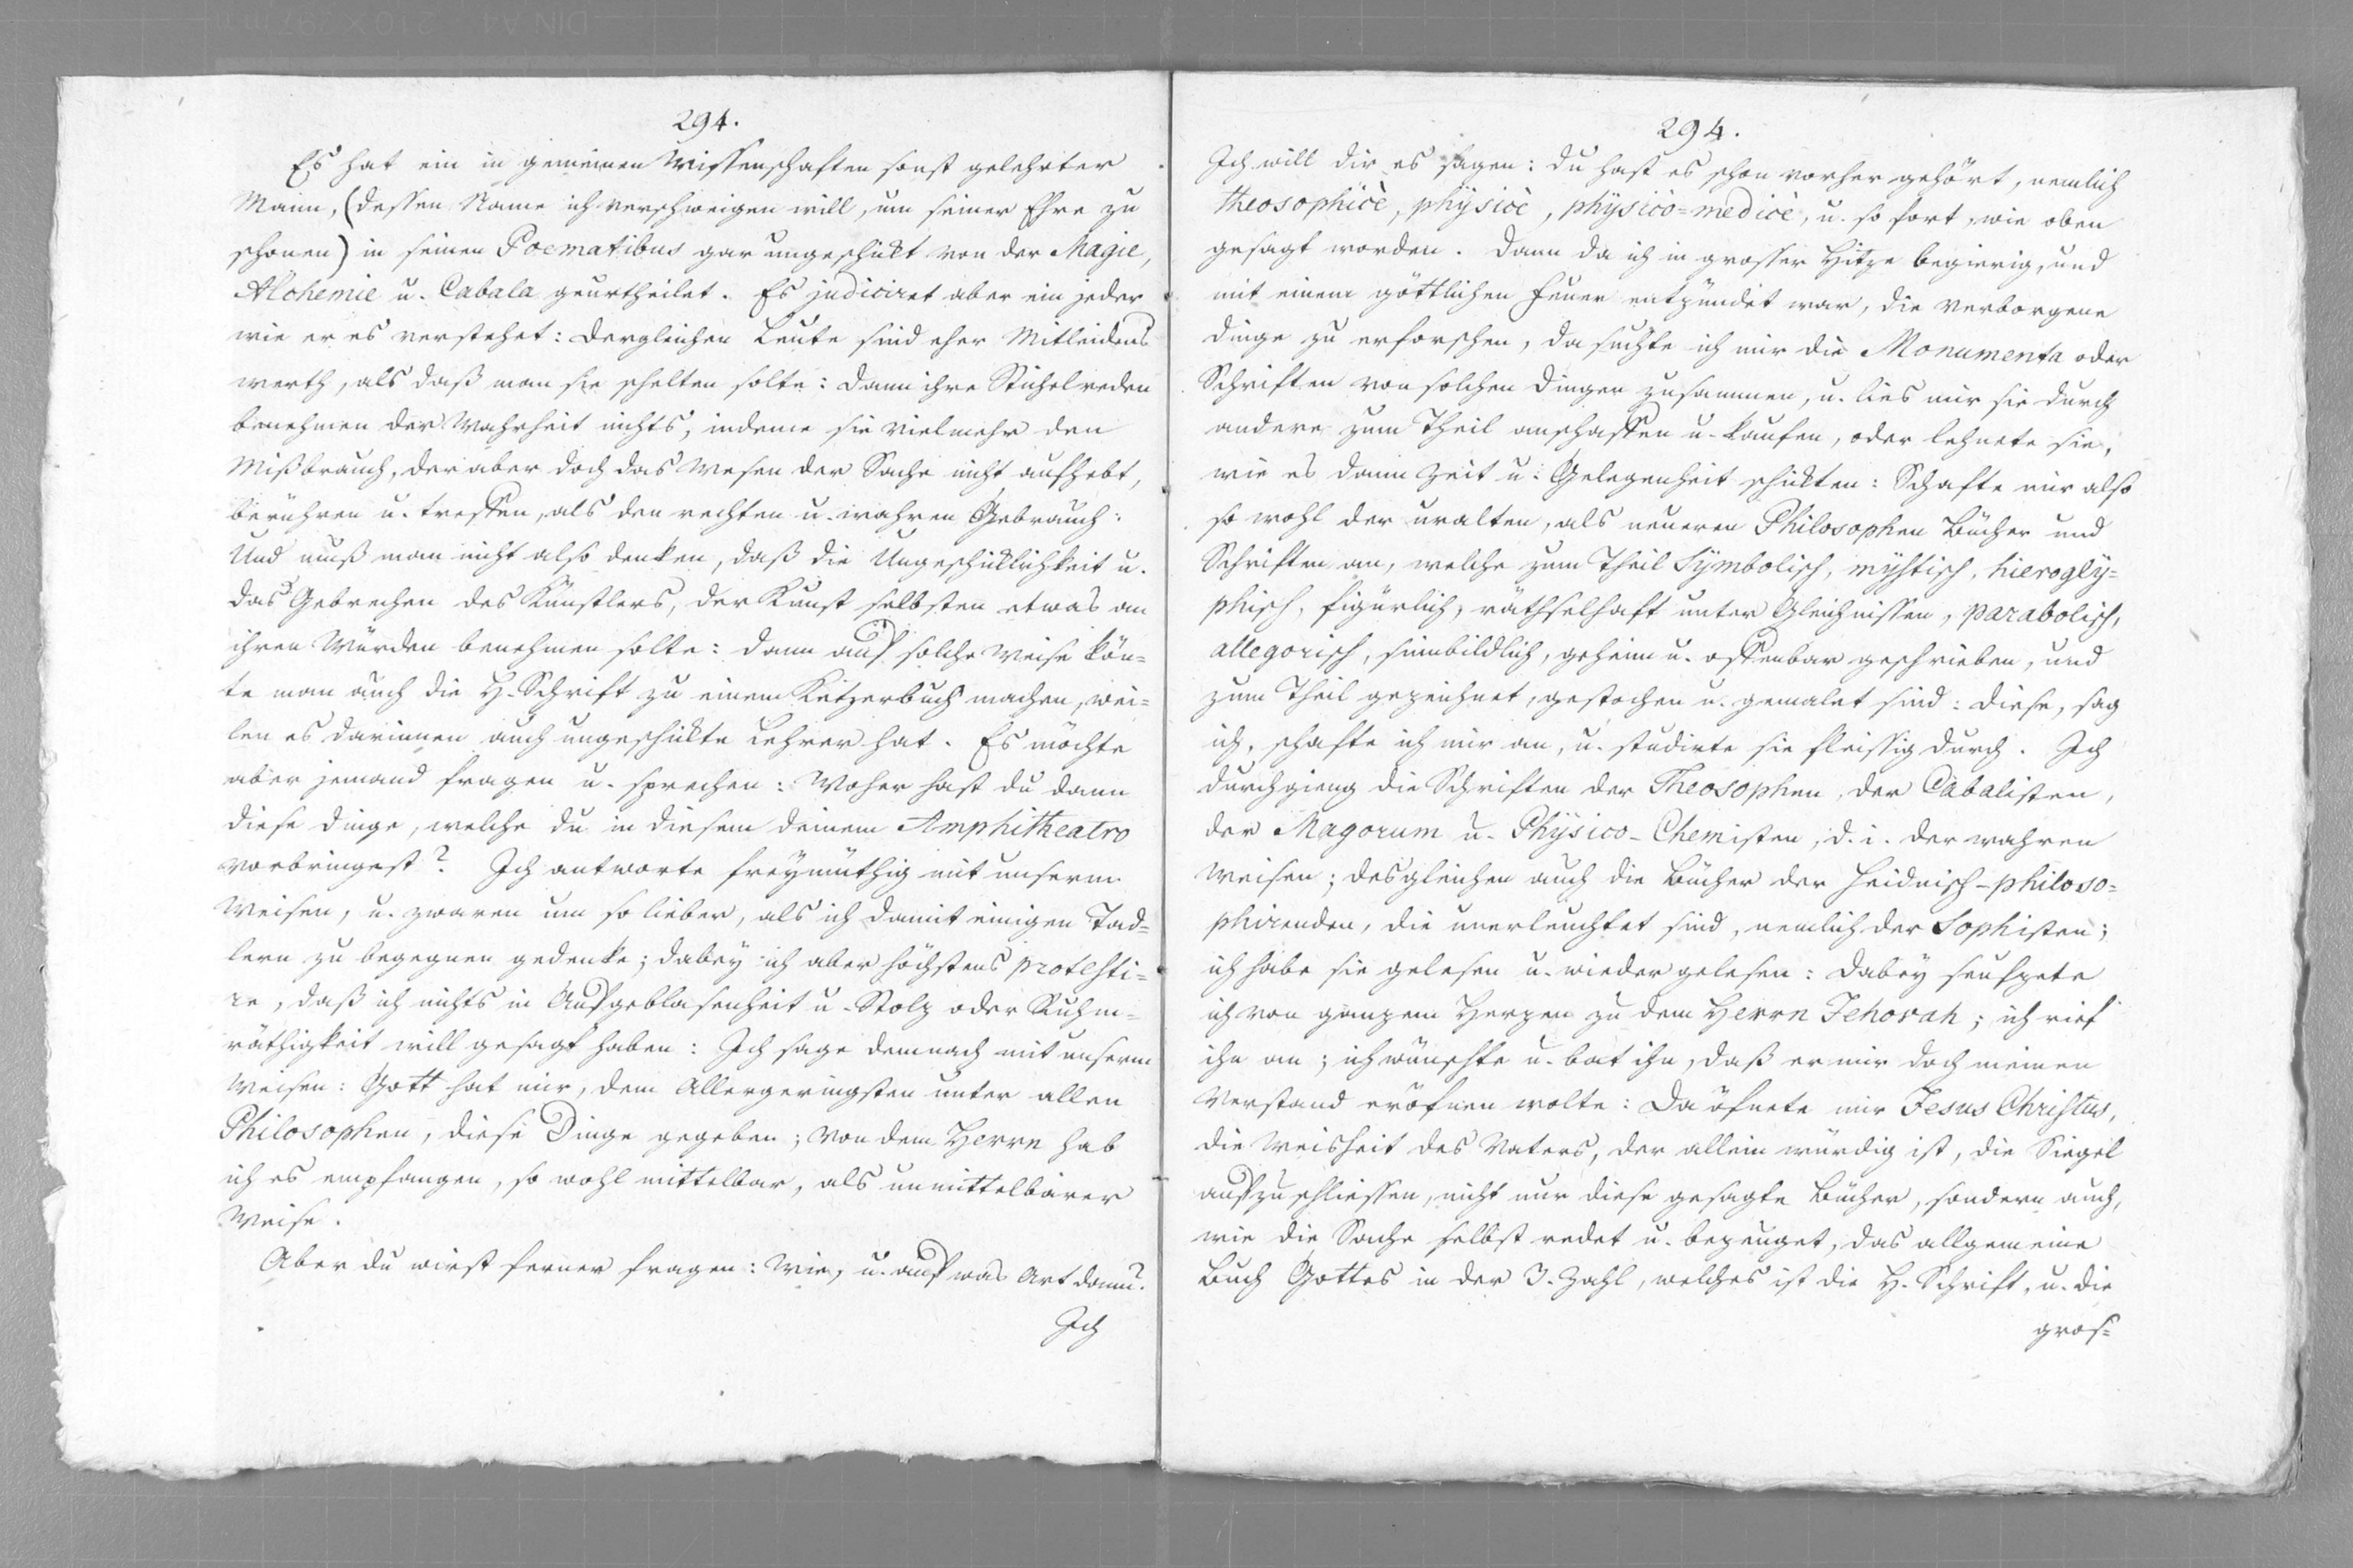 294.
Es hat ein in gemeinen Wissenschaften sonst gelehrter
Mann, (dessen Name ich verschweigen will, um seiner Ehre zu
schonen) in seinen Poematibus gar ungeschikt von der Magie,
Alchemie u. Cabala geurtheilet. Es judiciret aber ein jeder
wie er es verstehet: dergleichen Leute sind eher Mitleidens
werth, als daß man sie schelten solte: dann ihre Stichelreden
benehmen der Wahrheit nichts, indeme sie vielmehr den
Mißbrauch, der aber doch das Wesen der Sache nicht aufhebt,
berühren u. treffen, als den rechten u. wahren Gebrauch:
Und muß man nicht also denken, daß die Ungeschiklichkeit u.
das Gebrechen des Künstlers, der Kunst selbsten etwas an
ihren Würden benehmen solte: dann auf solche Weise kön=
te man auch die H. Schrift zu einem Ketzerbuch machen, wei=
len es darinnen auch ungeschikte Lehrer hat. Es möchte
aber jemand fragen u. sprechen: Woher hast du dann
diese Dinge, welche du in diesem deinem Amphitheatro
vorbringest? Ich antworte freymüthig mit unserm
Weisen, u. zwaren um so lieber, als ich damit einigen Tad=
lern zu begegnen gedenke; dabey ich aber höchstens protesti=
re, daß ich nichts in Aufgeblasenheit u. Stolz oder Ruhm=
räthigkeit will gesagt haben: Ich sage demnach mit unserm
Weisen: Gott hat mir, dem Allergeringsten unter allen
Philosophen, diese Dinge gegeben; von dem Herrn hab
ich es empfangen, so wohl mittelbar, als unmittelbarer
Weise.
Aber du wirst ferner fragen: Wie, u. auf was Art dann?
Ich
294.
Ich will dir es sagen: du hast es schon vorher gehört, nemlich
theosophicè, physicè, physicò=medicè, u. so fort, wie oben
gesagt worden. Dann da ich in grosser Hitze begierig, und
mit einem göttlichen Feuer entzündet war, die verborgene
Dinge zu erforschen, da suchte ich mir die Monumenta oder
Schriften von solchen Dingen zusammen, u. lies mir sie durch
andere zum Theil anschaffen u. kaufen, oder lehnete sie,
wie es dann Zeit u. Gelegenheit schikten: Schafte mir also
so wohl der uralten, als neueren Philosophen Bücher und
Schriften an, welche zum Theil Symbolisch, mystisch, hierogly=
phisch, figürlich, räthselhaft unter Gleichnissen, parabolisch,
allegorisch, sinnbildlich, geheim u. offenbar geschrieben, und
zum Theil gezeichnet, gestochen u. gemalet sind: diese, sag
ich, schafte ich mir an, u. studirte sie fleissig durch. Ich
durchgieng die Schriften der Theosophen, der Cabalisten,
der Magorum u. Physico-Chemisten, d. i. der wahren
Weisen; desgleichen auch die Bücher der heidnisch-philoso=
phirenden, die unerleuchtet sind, nemlich der Sophisten;
ich habe sie gelesen u. wieder gelesen: dabey seufzete
ich von ganzem Herzen zu dem Herrn Jehovah; ich rief
ihn an; ich wünschte u. bat ihn, daß er mir doch meinen
Verstand eröfnen wolte: Da öfnete mir Jesus Christus,
die Weisheit des Vaters, der allein würdig ist, die Siegel
aufzuschliessen, nicht nur diese gesagte Bücher, sondern auch,
wie die Sache selbst redet u. bezeuget, das allgemeine
Buch Gottes in der 3. Zahl, welches ist die H. Schrift, u. die
gros=